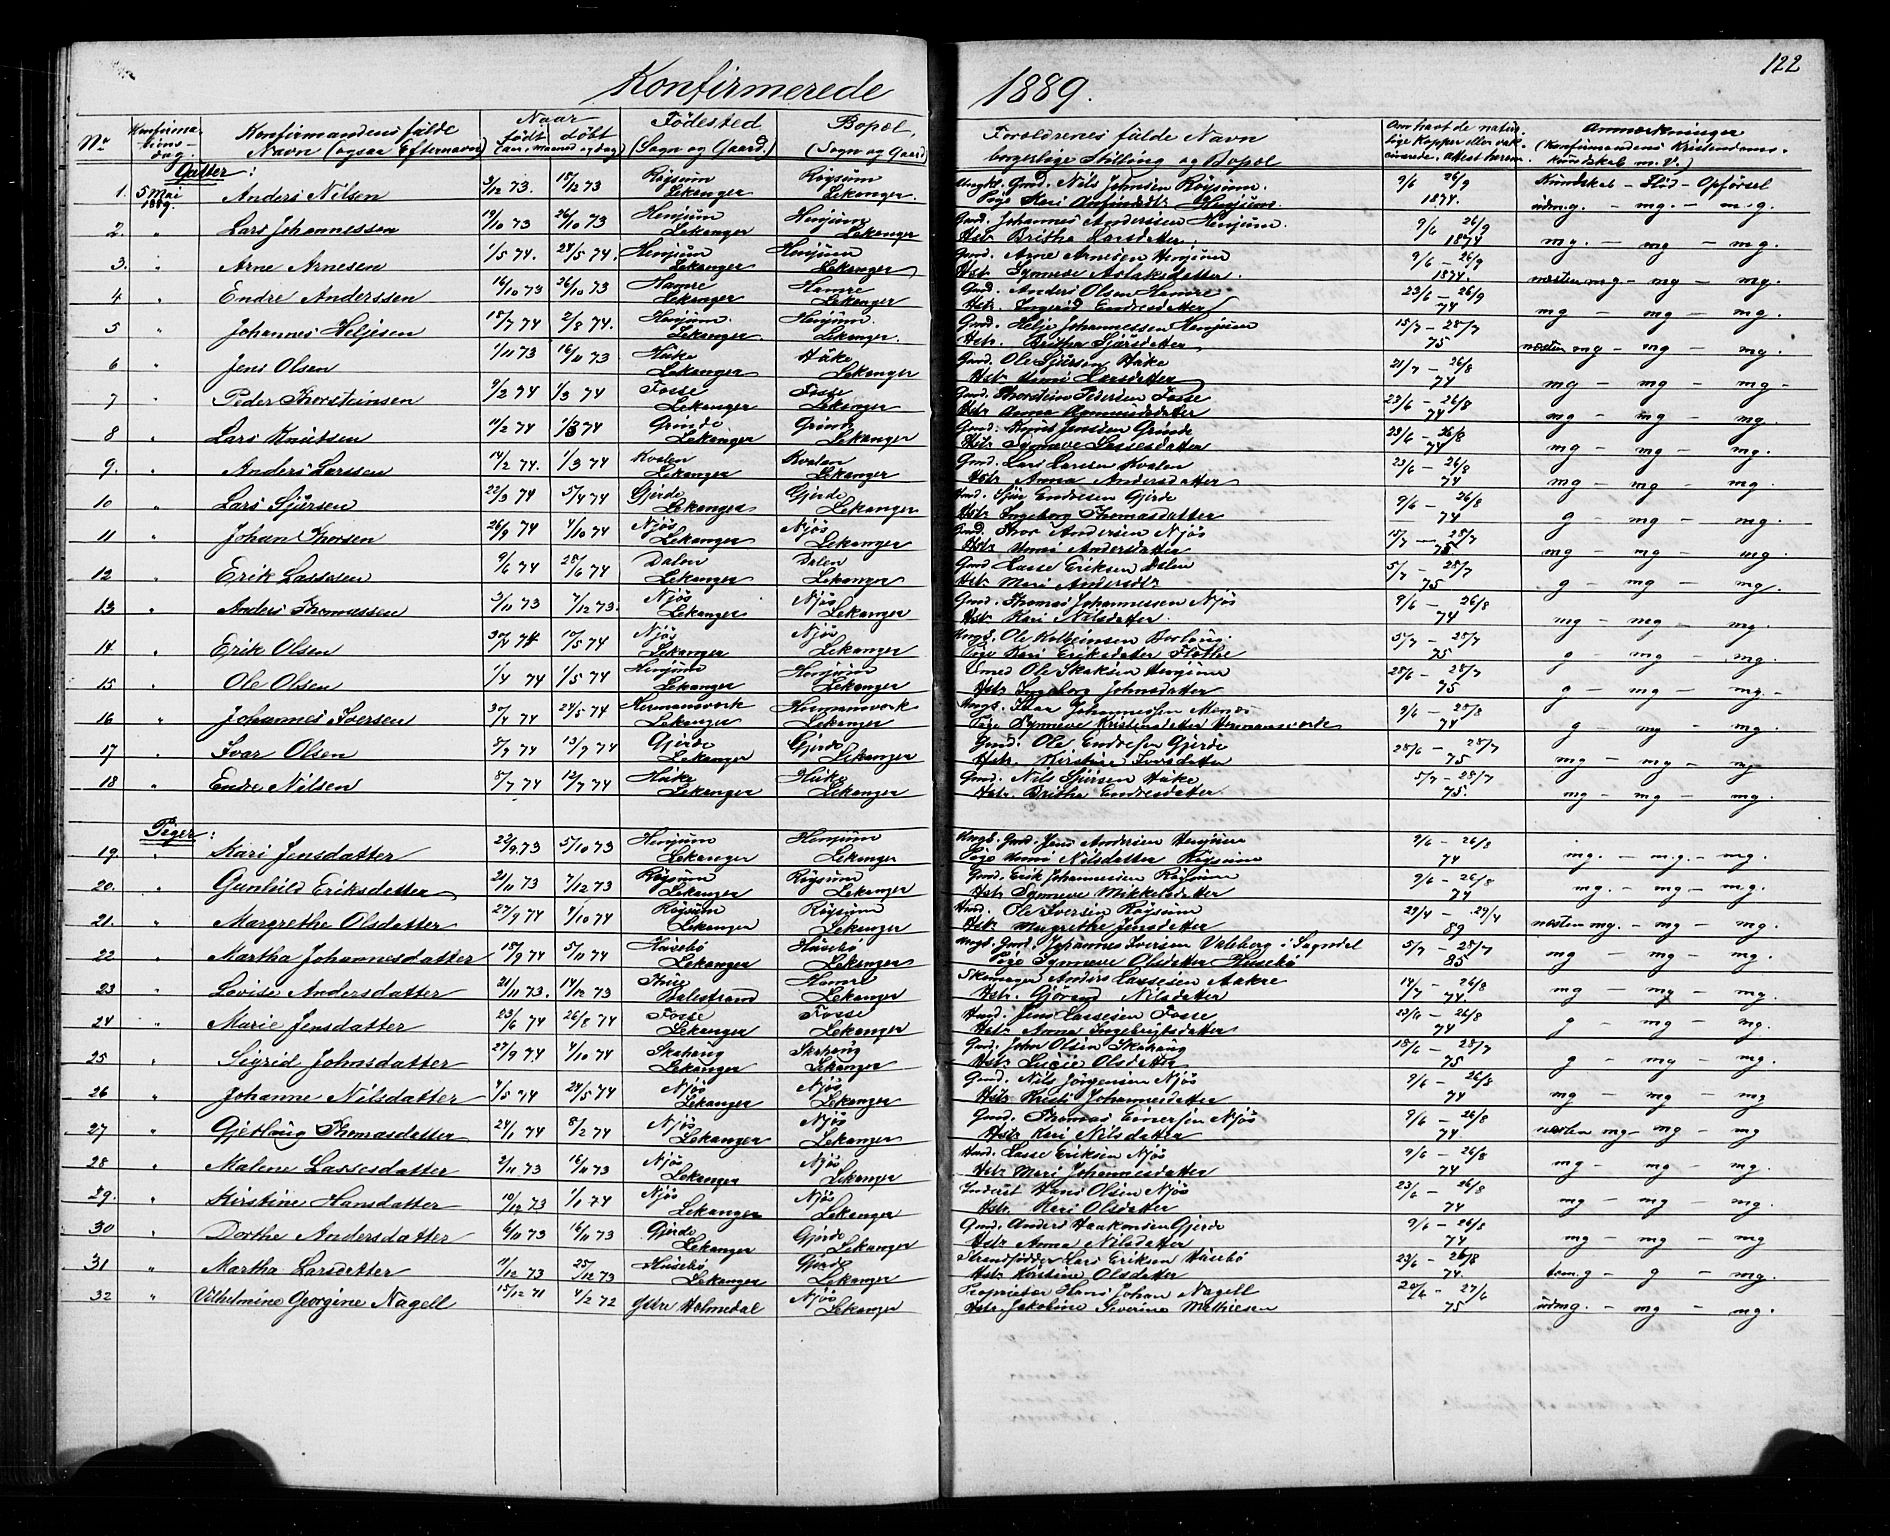 122
Konfirmerede 1889.
No Konfirmationsdag. Konfirmandens fulde Navn (ogsaa Efternavn) Naar født döbt (aar, maaned og dag) Födested (Sogn og Gaard.) Bopæl, (Sogn og Gaard) Forældrenes fulde Navn borgerlige Stilling og Bopæl Anmærkninger (Konfirmandens Kristendoms-kundskab m.V.)
Gutter: Kundskab - Flid - Opförsel
1. 5 Mai 1889. Anders Nilsen 3/12 73. 18/12 73 Röysum Lekanger Röysum Lekanger. Ungk. Gmd. Nils Johnsen Röysum. Pige Kari Henjum. 9/6 26/9 1874. udm.g. - mg. - mg.
2. " Lars Johannessen 19/10 73 26/10 73 Henjum Lekanger Henjum Lekanger Gmd. Johannes Anderssen Henjum. Hstr Britha Larsdatter. 9/6 26/9 1874 mg. - mg - mg.
3. " Arne Arnesen 1/5 74. 24/5 74. Henjum Lekanger Henjum Lekanger Gmd. Arne Arnesen Henjum Hstr Synneve Aslaksdatter. 9/6 - 26/9 1874. næsten mg - mg - mg.
4 " Endre Anderssen 16/10 73 26/10 73 Hamre Lekanger Hamre Lekanger Gmd. Anders Olsen Hamre Hstr. Ingerid Endresdatter 23/6 - 26/9 74 mg - mg - mg.
5 " Johannes Heljesen 18/7 74 2/8 74. Henjum. Lekanger Henjum. Lekanger. Gmd. Helje Johannessen Henjum Hstr. Britha Sjursdatter 15/7 - 28/7 75 næsten mg - mg - mg.
6 " Jens Olsen 1/11 73 16/11 73 Huke Lekanger Huke Lekanger Gmd. Ole Sjursen Huke Hstr Unni Larsdatter 21/7 - 26/8 74 mg - mg - mg -
7 " Peder Thorsteinsen 9/2 74 1/3 74 Fosse Lekanger Fosse Lekanger Gmd. Thorstein Pedersen Fosse Hstr Anna Amundsdatter 23/6 - 26/8 74 mg - mg - mg.
8 " Lars Knutsen 11/2 74 1/3 74 Grinde Lekanger Grinde Lekanger Gmd. Jenssen Grinde Hstr. Synneve Lassesdatter 23/6 - 26/8 74 mg - mg - mg.
9. " Anders Larssen 14/2 74. 1/3 74 Kvalen Lekanger Kvalen Lekanger Gmd. Lars Larsen Kvalen Hstr Anna Andersdatter 23/6 - 26/8 74 mg - mg - mg.
10 " Lars Sjursen 22/3 74 5/4 74 Gjerde Lekanger Gjerde Lekanger Sjur Endresen Gjerde Hstr Ingeborg Thomasdatter 9/6 - 26/8 74 g - mg - mg.
11 " Johan Thorsen 26/9 74 4/10 74 Njös Lekanger Njös Lekanger Gmd Thor Andersen Njös Hstr Unni Andersdatter 15/7 - 28/7 75 mg - mg - mg.
12 " Erik Lassesen 9/6 74 28/6 74 Dalen Lekanger Dalen Lekanger Gmd Lasse Eriksen Dalen Hstr Mari Andersdtr 5/7 - 28/7 75 g - mg - mg.
13 " Anders Thomassen 3/11 73 7/12 73. Njös Lekanger Njös Lekanger Gmd. Thomas Johannessen Njös Hstr Kari Nilsdatter. 9/6 - 26/8 74 mg - mg - mg.
14 " Erik Olsen 30/4 74 10/5 74 Njös Lekanger Njös Lekanger Ungk. Ole Pige Kari Eriksdatter Flöthe 5/7 - 28/7 75 g - mg - mg.
15 " Ole Olsen 1/4 74 1/5 74 Henjum Lekanger Henjum Lekanger Ole Henjum Hstr Ingeborg Johnsdatter 28/6 - 28/7 75 g - mg - mg. -
16 " Johannes Iversen 30/4 74 24/5 74 Hermansverk Lekanger Hermansverk Lekanger Ungk. Ivar Johannessen Pige Synneve Kristensdatter Hermansverk 9/6 - 28/8 74 g - mg - mg.
17 " Ivar Olsen 8/9 74 13/9 74 Gjerde Lekanger Gjerde Lekanger Gmd. Ole Endresen Gjerde Hstr. Kirstine Iversdatter 28/6 - 28/7 75 mg - mg - mg
18 " Endre Nilsen 5/7 74 12/7 74 Huke Lekanger Huke Lekanger Gmd. Nils Sjursen Huke Hstr. Britha Endresdatter. 5/7 - 28/7 75. mg - mg - mg.
Piger:
19. " Kari Jensdatter 22/9 73 5/10 73 Henjum Lekanger Henjum Lekanger Ungk. Gmd. Jens Andersen Henjum Pige Unni Nilsdatter Röysum 9/6 - 26/8 74 mg. - mg. - mg.
20. " Gunhild Eriksdatter 21/11 73 7/12 73 Röysum Lekanger Röysum Lekanger Gmd. Erik Johannessen Röysum Hstr Synneve Mikkelsdatter 9/6 - 26/8 74 mg. - mg - mg.
21. " Margrethe Olsdatter 27/9 74 4/10 74 Röysum Lekanger Röysum Lekanger Ole Iversen Röysum Hstr. Magrethe Jensdatter 29/4 - 29/4 89 næsten mg. - mg - mg.
22 " Martha Johannesdatter 18/9 74 5/11 74 Husebö Lekanger Husebö Lekanger Ungk. Gmd. Johannes Iversen Valeborg i Sogndal Pige Synneve Olsdatter Husebö 5/7 - 28/7 85 mg - mg - mg.
23 " Lovise Andersdatter 21/11 73. 14/12 73 Thue Balestrand Hamre Lekanger Skomager Anders Lassesen Aakre Hstr. Gjörond Nilsdatter 14/7 - 26/8 74. mg - mg - mg.
24 " Marie Jensdatter 23/6 74 26/8 74 Fosse Lekanger Fosse Lekanger Jens Lassesen Fosse Hstr Anna Ingebrigtsdatter 23/11 - 26/8 74 g - mg - mg.
25 " Sigrid Johnsdatter 27/9 74 4/10 74 Skahaug Lekanger Skahaug Lekanger Gmd. John Olsen Skahaug Hstr. Lucie Olsdatter 18/6 - 28/7 75 g - mg - mg.
26 " Johanne Nilsdatter 4/5 74 24/5 74 Njös Lekanger Njös Lekanger Gmd. Nils Jörgensen Njös Hstr Kristi Johannesdatter 9/6 - 26/8 74 mg - mg - mg.
27 " Gjetlaug Thomasdatter 24/1 74 8/2 74 Njös Lekanger Njös Lekanger Gmd. Thomas Njös Hstr Kari Nilsdatter 9/6 - 26/8 74. næsten mg - mg - mg
28 " Malene Lassesdatter 2/11 73 16/11 73 Njös Lekanger Njös Lekanger Lasse Eriksen Njös Hstr. Mari Johannesdatter 9/6 - 26/8 74 mg - mg - mg.
29. " Kirstine Hansdatter 10/12 73 1/1 74 Njös Lekanger Njös Lekanger Inderst Hans Olsen Njös Hstr. Kari Olsdatter 23/6 - 26/8 74 mg - mg - mg.
30 " Dorthe Andersdatter 6/11 73 16/11 73 Gjerde Lekanger Gjerde Lekanger Gmd. Anders Haakonsen Gjerde Hstr Anna Nilsdatter 9/6 - 26/8 74 mg - mg - mg.
31 " Martha Larsdatter 11/12 73 25/12 73 Husebö Lekanger Gjerde Lekanger Strandsidder Lars Eriksen Husebö Hstr Kristine Olsdatter 23/6 - 26/8 74. tem.g - g - mg.
32 " Vilhelmine Georgine Nagell 15/12 71 4/2 72 Ytre Holmedal Njös Lekanger Proprietær Hans Johan Nagell Hstr. Jakobine Severine Mathiesen 20/6 - 27/6 75 udmg. - mg - mg.